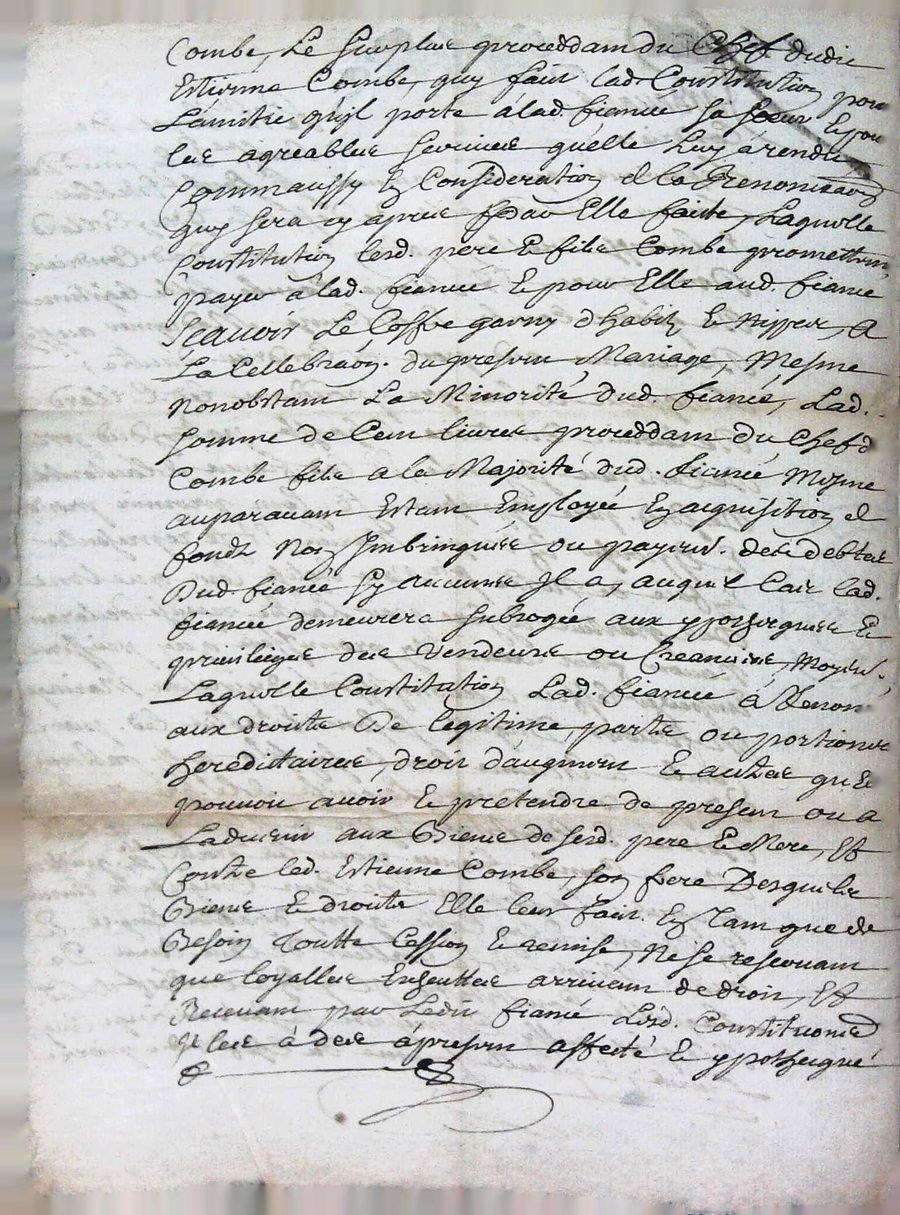 Combe, Le Surplus proceddam du Chef dudit
Estienne Combe, quy fait lad. Constitution pour
L'amitié qu'jl porte alad. fiancée sa soeur & pour
les agreables services quelle Luy à rendu
Comm'aussy En Consideration d la Renonciaon
quy sera cy apres par Elle faitte, Laquelle
Constitution lesd. pere & fils Combe promettent
payer à lad. fiancée & pour Elle aud. fiancé
Scavoir Le Coffre garny d'habitz & Nippes, A
La Cellebraôn. du presem Mariage, Mesme
Nonobstam La Minorité dud. fiancé, Lad.
somme de Cem livres proceddam du Chef d
Combe fils a la Majorité dud. fiancé Mesme
auparavam Estam Employée En acquisition d
fondz Non Jmbringués ou payem. des debtes
Dud. fiancé sy aucunes Jl a, auquel Cas lad.
fiancée demeurera subrogée aux ypotheques &
privileges des Vendeurs ou Creanciers, Moyen.
Laquelle Constitution Lad. fiancée à Renon
aux droits De légitime, parts ou portions
hereditaires, droit d'augment & autres qu'El
pouvoit avoir & pretendre de present ou a
Ladvenir aux Biens de sesd. pere & Mere, Et
Contre led. Estienne Combe, son frere Desquels
Biens & droits Elle leur fait. En Tam que de
Besoin Toutte Cession & remise, Ne se rescrvam
que loyalles Escheuttes arrivam de droit, Et
Recevam par Ledit fiancé Lesd. Constitutions
Jl les à des àpresem affecté & ypothequé